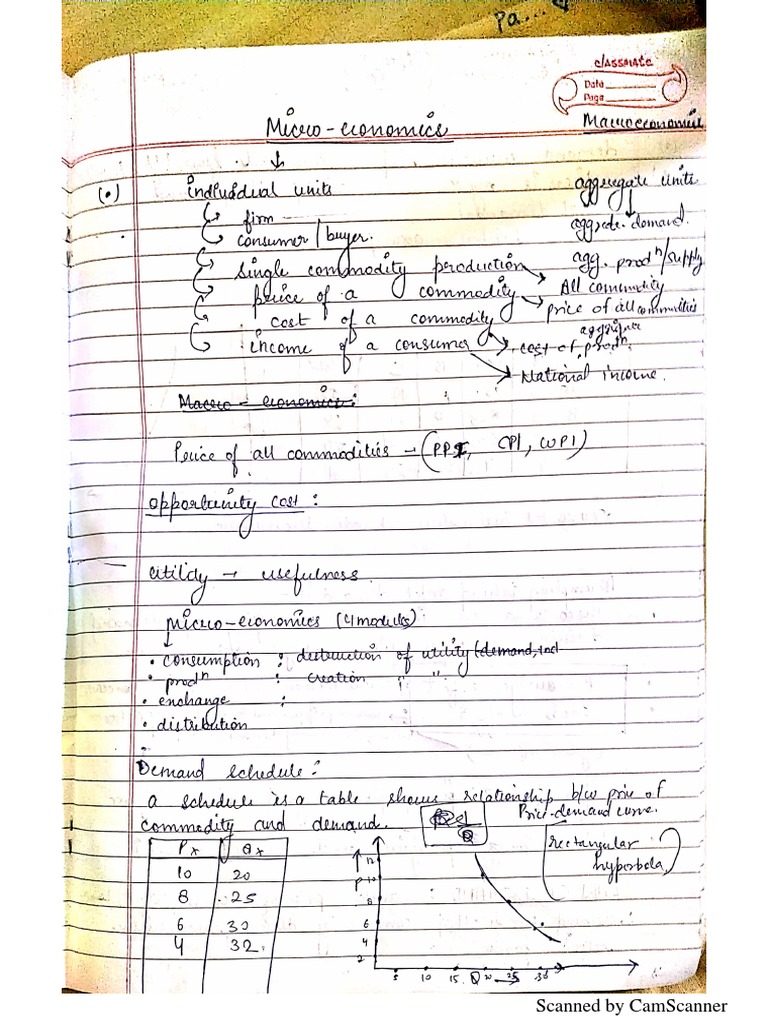 Pa...
classmate
Date
Page
Micro-economics
Macroeconomics
(•) individual units
aggregate units
firm
aggrate demand.
consumer/buyer.
single commodity production
agg. prodⁿ/supply
All commodity
price of a commodity
price of all commodities
cost of a commodity
aggregate
cost of prodⁿ.
income of a consumer
National income.
Macro-economics:
Price of all commodities → (PPI, CPI, WPI)
opportunity cost:
utility → usefulness
Micro-economics (4 modules)
• consumption : destruction of utility (demand, incl
• prodⁿ : creation " "
• exchange :
• distribution
Demand schedule:
a schedule is a table shows relationship b/w price of
commodity and demand.
Price-demand curve.
rectangular
hyperbola
Px Qx
10 20
8 25
6 30
4 32
P
12
10
8
6
4
2
5 10 15 Q 20 25 30
Scanned by CamScanner